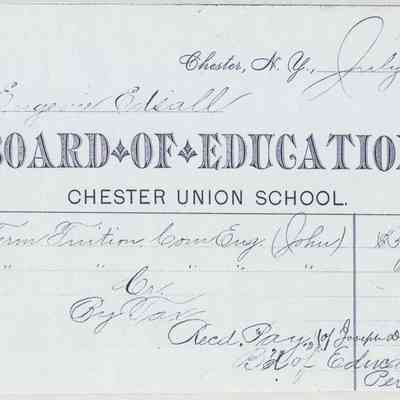 Chester, N. Y., July
Eugene Edsall
BOARD OF EDUCATION
CHESTER UNION SCHOOL.
Term Tuition, Com Eng. (John) $
" " " " "
Cr.
By Tax
Recd. Pay, (of Joseph D
Bd of Educa
Per